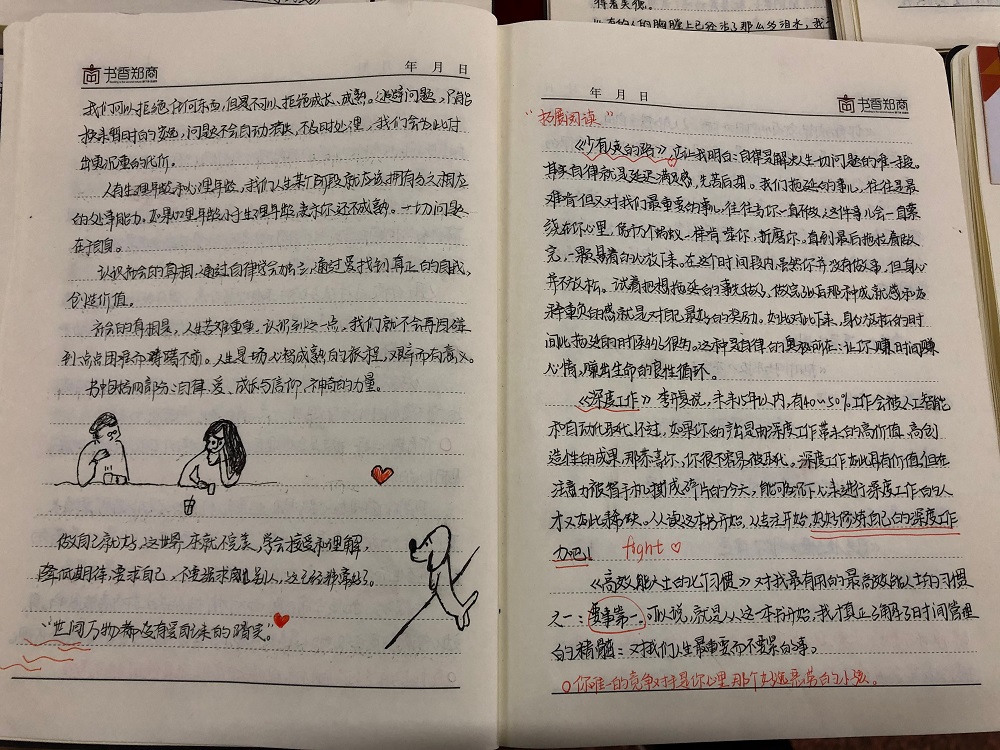 书香郑商
年 月 日
我们可以拒绝任何东西,但是不可以拒绝成长、成熟。逃避问题,只能
换来暂时的安逸,问题不会自动消失,不及时处理,我们会为此付
出更沉重的代价。
人有生理年龄和心理年龄,我们人生某个阶段就应该拥有与之相应
的处事能力。如果心理年龄小于生理年龄,表示你还不成熟。一切问题
在于自身。
认识社会的真相,通过自律学会独立,通过爱找到真正的自我,
创造价值。
社会的真相是,人生苦难重重,认识到这一点,我们就不会再因碰
到一点点困难而踌躇不前。人生是一场心智成熟的旅程,艰辛而有意义。
书中包括四部分:自律、爱、成长与信仰、神奇的力量。
做自己就好,这世界本就不完美,学会接受和理解,
降低期待,要求自己,不要强求别人,这已经非常好了。
“世间万物都没有爱自己来的踏实。”
得着关德。
的胸膛上已经沾了那么多泪水,我
年 月 日
书香郑商
“拓展阅读”
《少有人走的路》它让我明白:自律是解决人生一切问题的唯一途径。
其实自律就是延迟满足感,先苦后甜。我们拖延的事儿,往往是最
难肯但又对我们最重要的事儿,往往当你一直不做,这件事儿会一直萦
绕在你心里,像几个蚂蚁一样啃噬你,折磨你。直到最后拖拉着做
完,一颗悬着的心放下来。在这个时间段内,虽然你并没有做事,但身心
并不放松。试着把想拖延的事先做了,做完以后那种成就感和如
释重负的感就是对自己最好的奖励。如此对比下来,身心放松的时
间比拖延的时候多很多。这种是自律的奥秘所在:让你赚时间赚
心情,赚出生命的良性循环。
《深度工作》李开复说,未来15年以内,有40~50%工作会被人工智能
和自动化取代,不过,如果你的产出是由深度工作带来的高价值、高创
造性的成果,那恭喜你,你很不容易被取代。深度工作如此具有价值,但在
注意力被智手机撕成碎片的今天,能够沉下心来进行深度工作的人
才又如此稀缺。从读这本书开始,从专注开始,好好修炼自己的深度工作
力吧! fight
《高效能人士的七个习惯》对我最有用的是高效能人士的习惯
之一:要事第一。可以说,就是从这一本书开始,我才真正了解了时间管理
的精髓:对我们人生最重要而不要紧的事。
你唯一的竞争对手是你心里那个好逸恶劳的小孩。